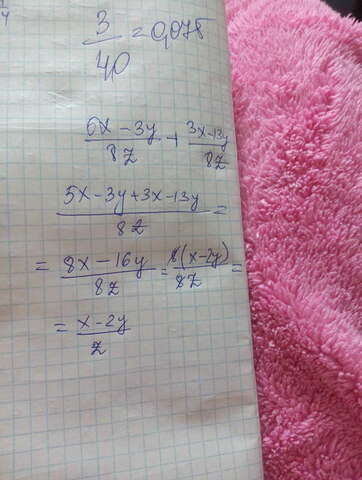 3/40 = 0,075
(6x - 3y)/8z + (3x - 13y)/8z
(5x - 3y + 3x - 13y)/8z =
= (8x - 16y)/8z = 8(x - 2y)/8z =
= (x - 2y)/z